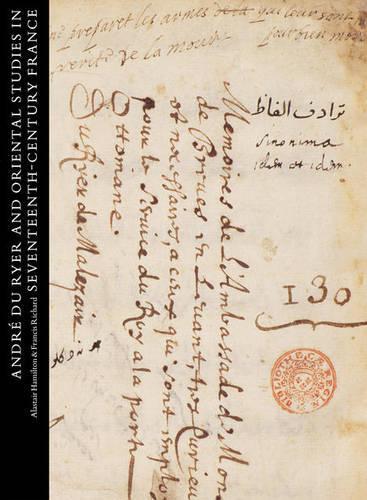 ANDRÉ DU RYER AND ORIENTAL STUDIES IN
SEVENTEENTH-CENTURY FRANCE
Alastair Hamilton & Francis Richard
preparet les armes de la qui leur sont
verité de la mour
ترادف الفاظ
Sinonima
idem et idem.
Memoires de l'Ambassade d'Mon
de Breves en Levant, tres Curieux
et necessaires, a ceux qui sont emplo
pour le Service du Roy a la porte
Ottomane.
Du Ryer de Malezair
130